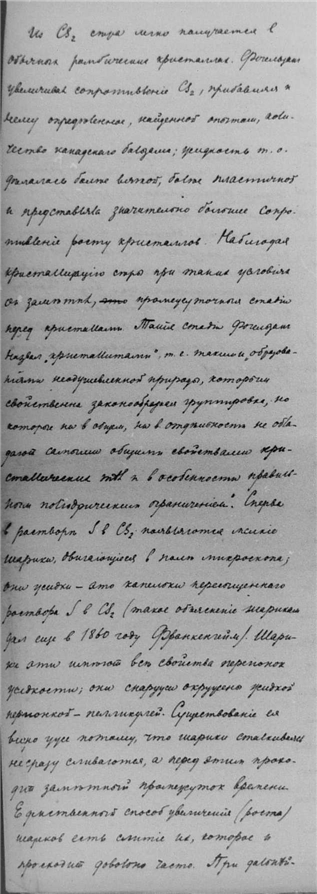 Из CS₂ сера легко получается в
обычных ромбических кристаллах. Фогельзанг
увеличивал сопротивленіе CS₂, прибавляя к
нему опредѣленное, найденной опытом, коли-
чество канадского бальзама; жидкость т. о.
дѣлалась болѣе вязкой, болѣе пластичной
и представляла значительно большее сопро-
тивленіе росту кристаллов. Наблюдая
кристаллизацію серы при таких условіях
он замѣтил, промежуточныя стадіи
перед кристаллами. Такія стадіи Фогельзанг
назвал „кристаллитами“, т. е. такими образова-
ніями неодушевленной природы, которым
свойственна закономѣрная группировка, но
которые ни в общем, ни в отдѣльности не обла-
дают самыми общими свойствами кри-
сталлических тѣл и в особенности правиль-
ным поліэдрическим ограниченіем“. Сперва
в растворѣ S в CS₂ появляются мелкіе
шарики, двигающіеся в полѣ микроскопа;
они жидки – это капельки пересыщеннаго
раствора S в CS₂ (такое объясненіе шарикам
дал еще в 1860 году Франкенгейм). Шари-
ки эти имѣют всѣ свойства перепонок
жидкости; они снаружи окружены жидкой
перепонкой – пелликулей. Существованіе ея
видно уже потому, что шарики сталкиваясь
не сразу сливаются, а перед этим прохо-
дит замѣтный промежуток времени.
Единственный способ увеличенія (роста)
шариков есть слитіе их, которое и
происходит довольно часто. При дальнѣй-